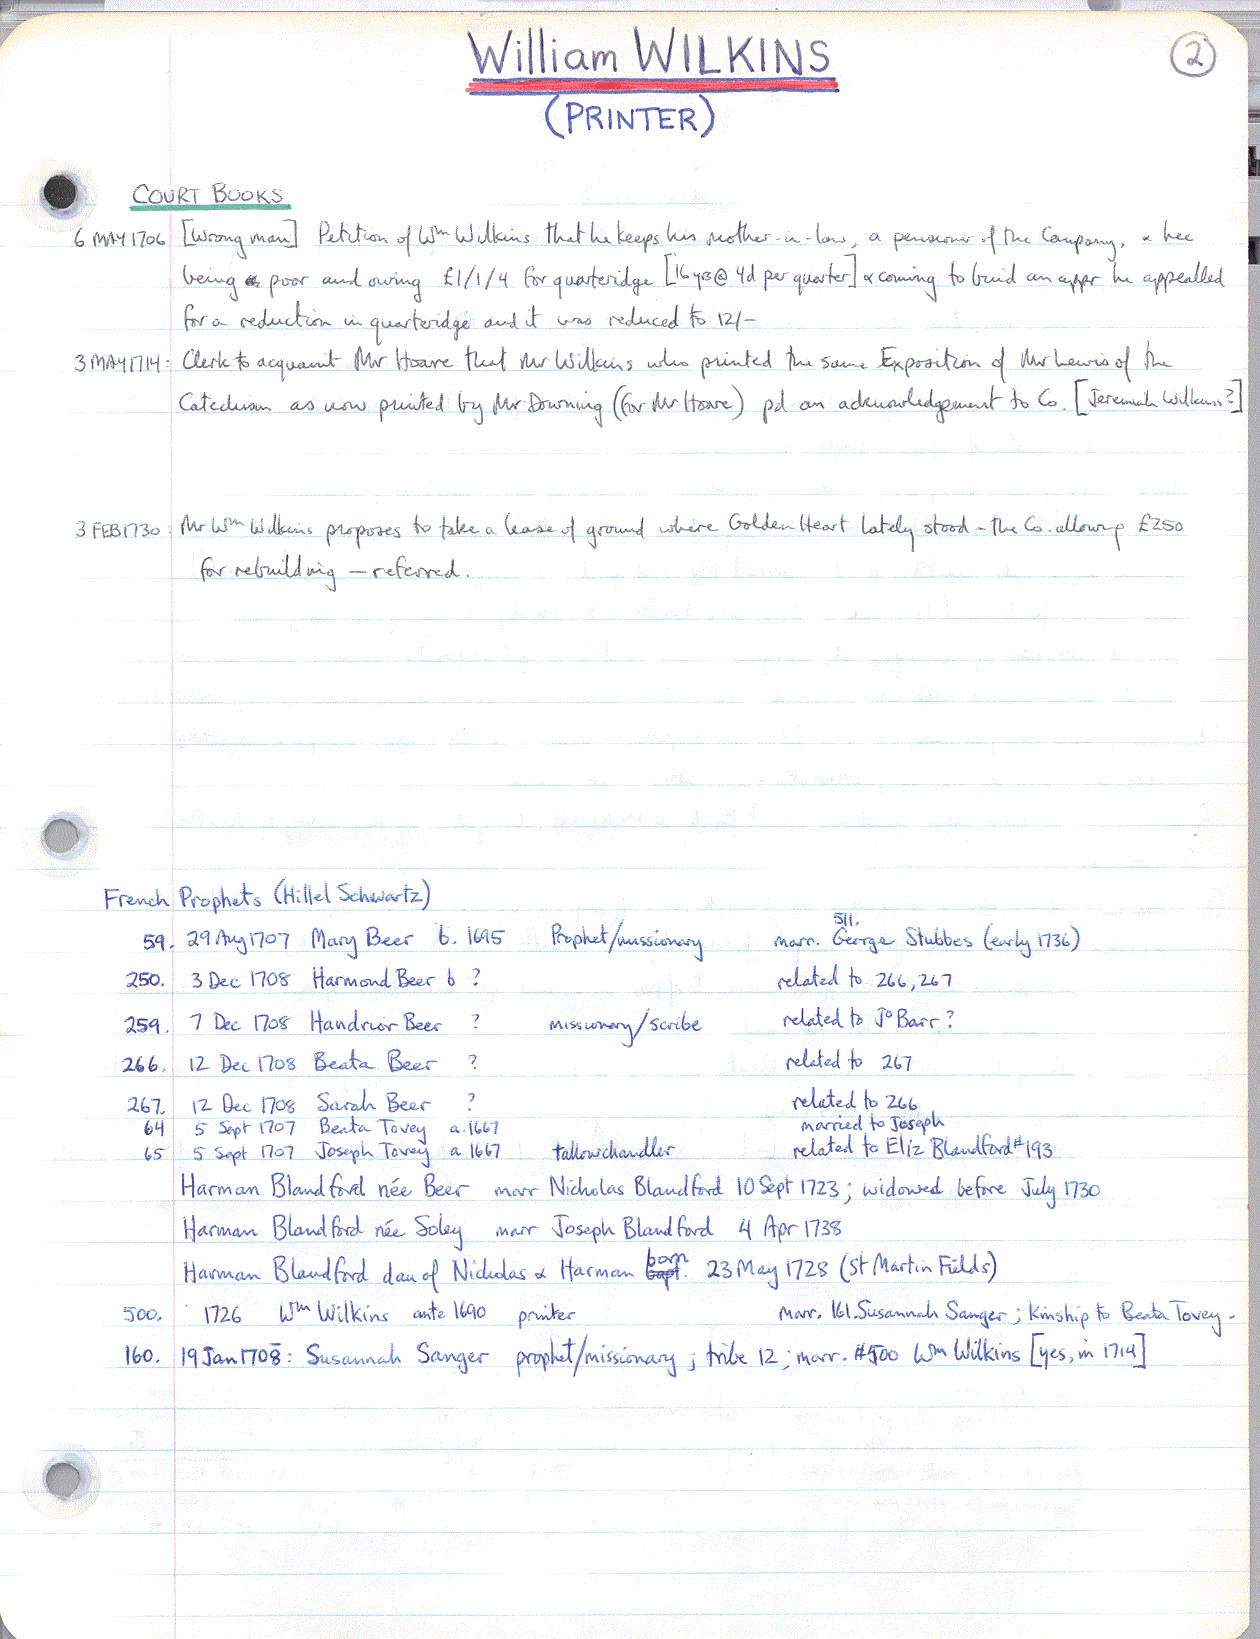 William WILKINS
2
(PRINTER)
COURT BOOKS
6 MAY 1706 [Wrong man] Petition of Wm Wilkins that he keeps his mother-in-law, a pensioner of the Company, & hee
being poor and owing £1/1/4 for quarteridge [16 yrs @ 4d per quarter] & coming to bind an appr he appealled
for a reduction in quarteridge and it was reduced to 12/-
3 MAY 1714: Clerk to acquaint Mr Hoare that Mr Wilkins who printed the same Exposition of Mr Lewis of the
Catechism as now printed by Mr Downing (for Mr Hoare) pd an acknowledgement to Co. [Jeremiah Wilkins?]
3 FEB 1730: Mr Wm Wilkins proposes to take a lease of ground where Golden Heart lately stood - the Co. allowing £250
for rebuilding — referred.
French Prophets (Hillel Schwartz)
511.
59. 29 Aug 1707 Mary Beer b. 1695 Prophet/missionary marr. George Stubbes (early 1736)
250. 3 Dec 1708 Harmond Beer b ? related to 266, 267
259. 7 Dec 1708 Handrior Beer ? missionary/scribe related to Jo Barr?
266. 12 Dec 1708 Beata Beer ? related to 267
267. 12 Dec 1708 Sarah Beer ? related to 266
64 5 Sept 1707 Beata Tovey a.1667 married to Joseph
65 5 Sept 1707 Joseph Tovey a 1667 tallowchandler related to Eliz Blandford #193
Harman Blandford née Beer marr Nicholas Blandford 10 Sept 1723; widowed before July 1730
Harman Blandford née Soley marr Joseph Blandford 4 Apr 1738
Harman Blandford dau of Nicholas & Harman born bapt. 23 May 1728 (St Martin Fields)
500. 1726 Wm Wilkins ante 1690 printer Marr. 161. Susannah Sanger; kinship to Beata Tovey -
160. 19 Jan 1708: Susannah Sanger prophet/missionary; tribe 12; marr. #500 Wm Wilkins [yes, in 1714]